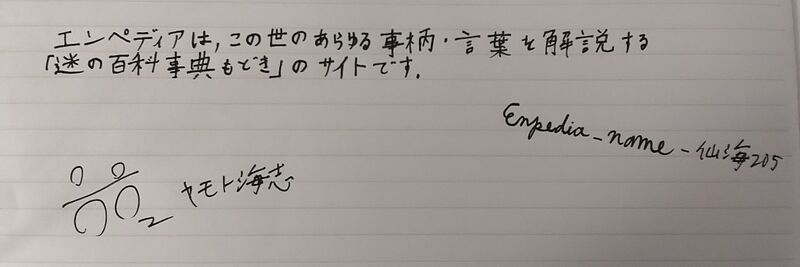 エンペディアは,この世のあらゆる事柄・言葉を解説する
「迷の百科事典もどき」のサイトです.
Enpedia_name-仙海205
ヤモト海志